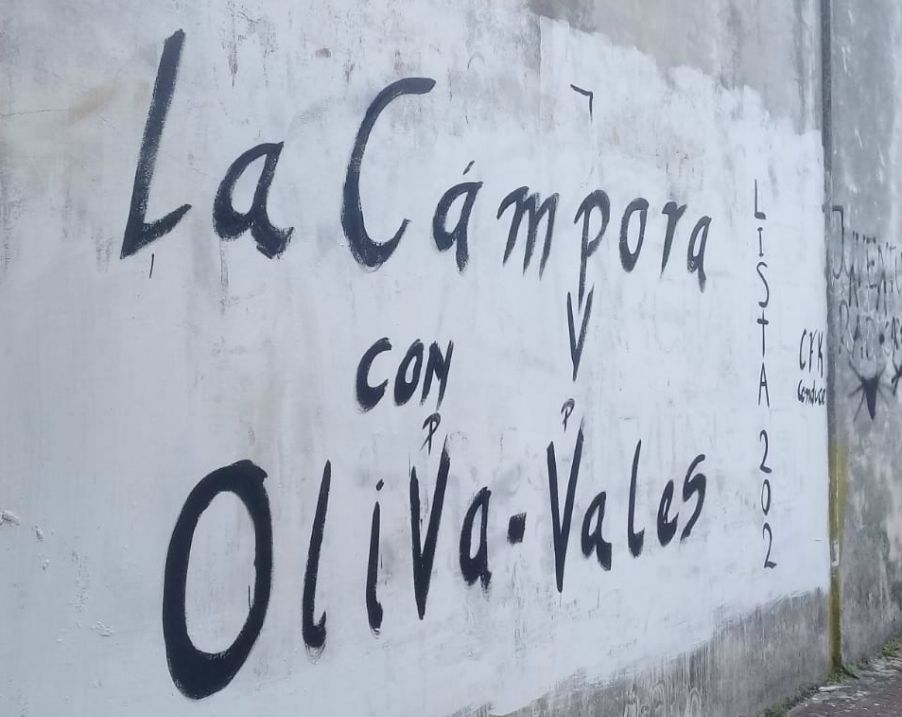 La Cámpora
V
con
P P
OliVa-Vales
LiStA 202
CFK
Conduce